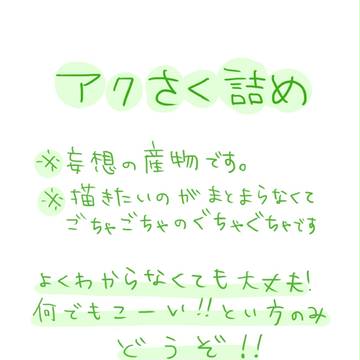 アクさく詰め
※妄想の産物です。
※描きたいのがまとまらなくて
ごちゃごちゃのぐちゃぐちゃです
よくわからなくても大丈夫!
何でもこーい!!とい方のみ
どうぞ!!